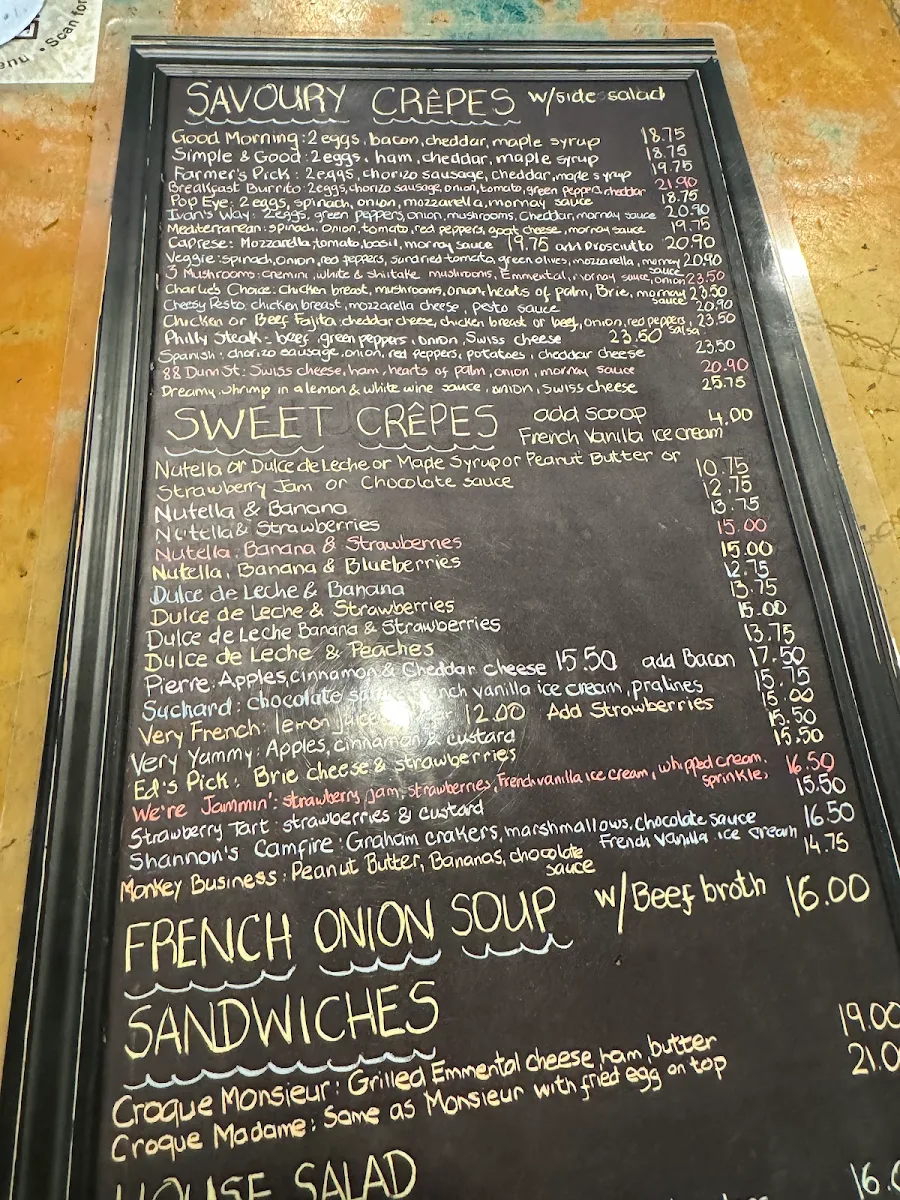 enu • Scan for
SAVOURY CRÊPES w/side salad
Good Morning: 2 eggs, bacon, cheddar, maple syrup 18.75
Simple & Good: 2 eggs, ham, cheddar, maple syrup 18.75
Farmer's Pick: 2 eggs, chorizo sausage, cheddar, maple syrup 19.75
Breakfast Burrito: 2 eggs, chorizo sausage, onion, tomato, green peppers, cheddar 21.90
Pop Eye: 2 eggs, spinach, onion, mozzarella, mornay sauce 18.75
Ivan's Way: 2 eggs, green peppers, onion, mushrooms, Cheddar, mornay sauce 20.90
Mediterranean: spinach, onion, tomato, red peppers, goat cheese, mornay sauce 19.75
Caprese: Mozzarella, tomato, basil, mornay sauce 19.75 add Prosciutto 20.90
Veggie: spinach, onion, red peppers, sundried tomato, green olives, mozzarella, mornay sauce 20.90
3 Mushrooms: Cremini, white & shiitake mushrooms, Emmental, mornay sauce, onion 23.50
Charlie's Choice: Chicken breast, mushrooms, onion, hearts of palm, Brie, mornay sauce 23.50
Cheesy Pesto: chicken breast, mozzarella cheese, pesto sauce 20.90
Chicken or Beef Fajita: cheddar cheese, chicken breast or beef, onion, red peppers, salsa 23.50
Philly Steak: beef, green peppers, onion, Swiss cheese 23.50
Spanish: chorizo sausage, onion, red peppers, potatoes, cheddar cheese 23.50
88 Dunn St: Swiss cheese, ham, hearts of palm, onion, mornay sauce 20.90
Dreamy shrimp in a lemon & white wine sauce, onion, Swiss cheese 25.75
SWEET CRÊPES add scoop French Vanilla ice cream 4.00
Nutella or Dulce de Leche or Maple Syrup or Peanut Butter or
Strawberry Jam or Chocolate sauce 10.75
Nutella & Banana 12.75
Nutella & Strawberries 13.75
Nutella, Banana & Strawberries 15.00
Nutella, Banana & Blueberries 15.00
Dulce de Leche & Banana 12.75
Dulce de Leche & Strawberries 13.75
Dulce de Leche Banana & Strawberries 15.00
Dulce de Leche & Peaches 13.75
Pierre: Apples, cinnamon & Cheddar cheese 15.50 add Bacon 17.50
Suchard: chocolate French vanilla ice cream, pralines 15.75
Very French: lemon juice 12.00 Add Strawberries 15.00
Very Yammy: Apples, cinnamon & custard 15.50
Ed's Pick: Brie cheese & strawberries 15.50
We're Jammin': strawberry jam, strawberries, French vanilla ice cream, whipped cream, sprinkles 16.50
Strawberry Tart: strawberries & custard 15.50
Shannon's Camfire: Graham crakers, marshmallows, chocolate sauce French Vanilla ice cream 16.50
Monkey Business: Peanut Butter, Bananas, chocolate sauce 14.75
FRENCH ONION SOUP w/Beef broth 16.00
SANDWICHES
Croque Monsieur: Grilled Emmental cheese, ham, butter 19.00
Croque Madame: Same as Monsieur with fried egg on top 21.0
HOUSE SALAD